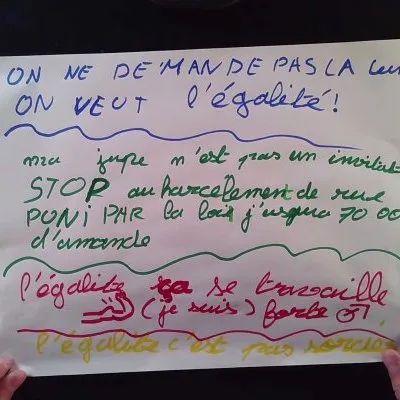 ON NE DE'MANDE PAS LA lun
ON VEUT l'égalité!
ma jupe n'est pas un invitat
STOP au harcelement de rue
PUNI PAR la loi j'usqu'a 70 00
d'amande
l'égalité ça se travaille
(je suis) forte
l'égalité c'est pas sorcié